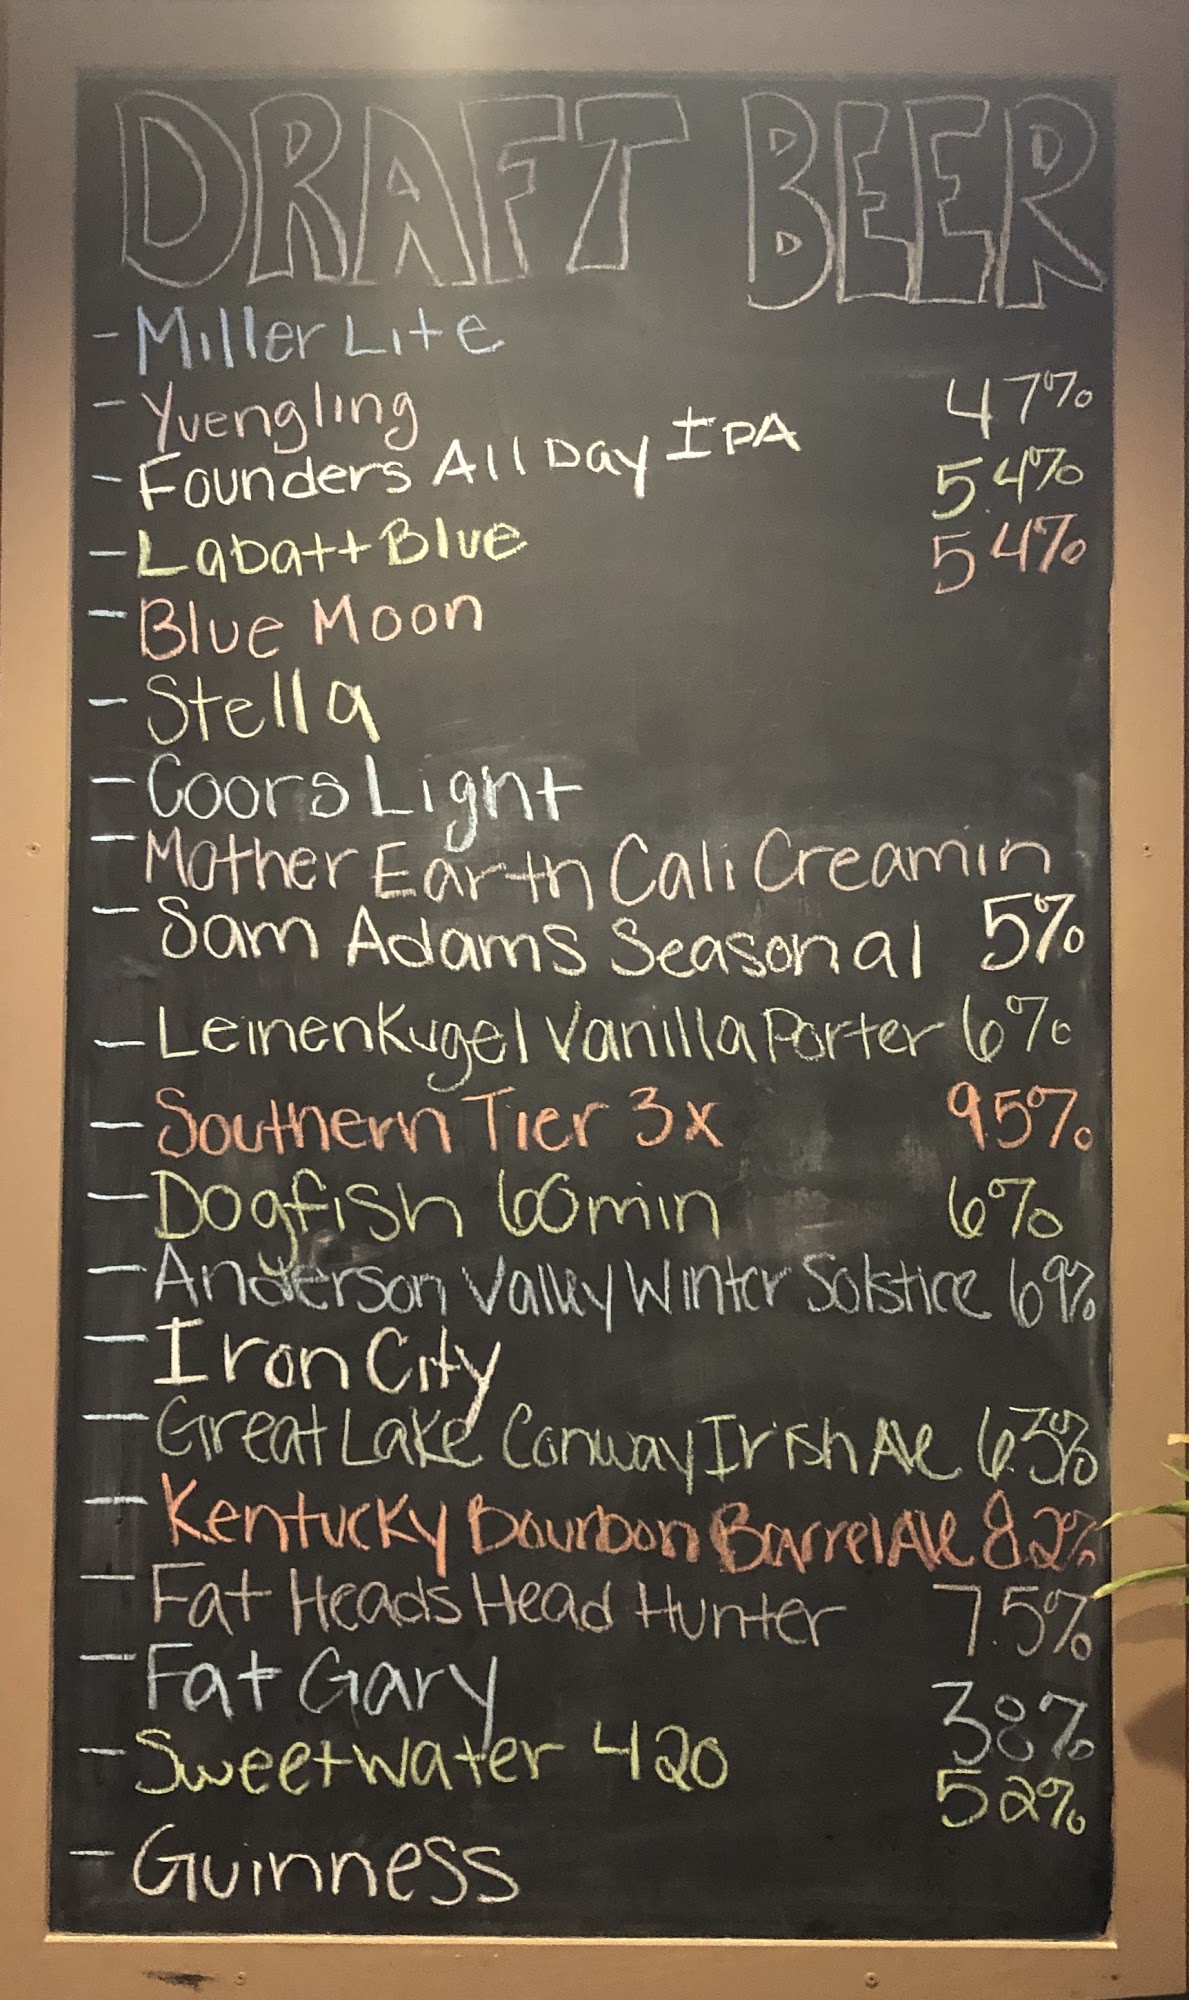 DRAFT BEER
- Miller Lite
- Yuengling 47%
- Founders All Day IPA 5.4%
- Labatt Blue 54%
- Blue Moon
- Stella
- Coors Light
- Mother Earth Cali Creamin
- Sam Adams Seasonal 5%
- Leinenkugel Vanilla Porter 6%
- Southern Tier 3x 9.5%
- Dogfish 60 min 6%
- Anderson Valley Winter Solstice 69%
- Iron City
- Great Lake Conway Irish Ale 6.3%
- Kentucky Bourbon Barrel Ale 8.2%
- Fat Heads Head Hunter 7.5%
- Fat Gary 38%
- Sweetwater 420 52%
- Guinness